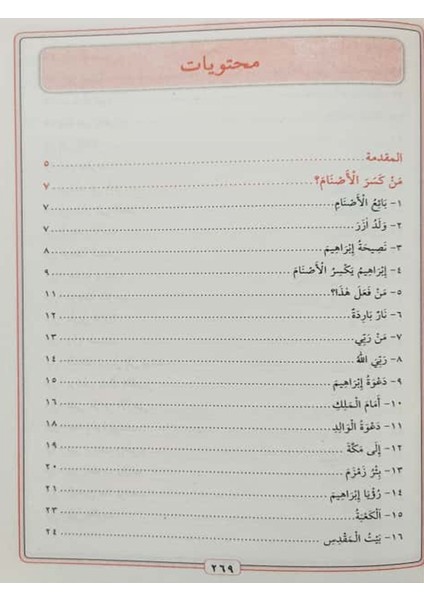 محتويات
المقدمة ..... ٥
مَنْ كَسَرَ الْأَصْنَامَ؟ ..... ٧
١- بَائِعُ الْأَصْنَامِ ..... ٧
٢- وَلَدُ آزَرَ ..... ٧
٣- نَصِيحَةُ إِبْرَاهِيمَ ..... ٨
٤- إِبْرَاهِيمُ يَكْسِرُ الْأَصْنَامَ ..... ٩
٥- مَنْ فَعَلَ هَذَا؟ ..... ١١
٦- نَارٌ بَارِدَةٌ ..... ١٢
٧- مَنْ رَبِّي ..... ١٣
٨- رَبِّيَ اللّٰهُ ..... ١٤
٩- دَعْوَةُ إِبْرَاهِيمَ ..... ١٥
١٠- أَمَامَ الْمَلِكِ ..... ١٦
١١- دَعْوَةُ الْوَالِدِ ..... ١٨
١٢- إِلَى مَكَّةَ ..... ١٩
١٣- بِئْرُ زَمْزَمَ ..... ٢٠
١٤- رُؤْيَا إِبْرَاهِيمَ ..... ٢١
١٥- اَلْكَعْبَةُ ..... ٢٣
١٦- بَيْتُ الْمَقْدِسِ ..... ٢٤
٢٦٩